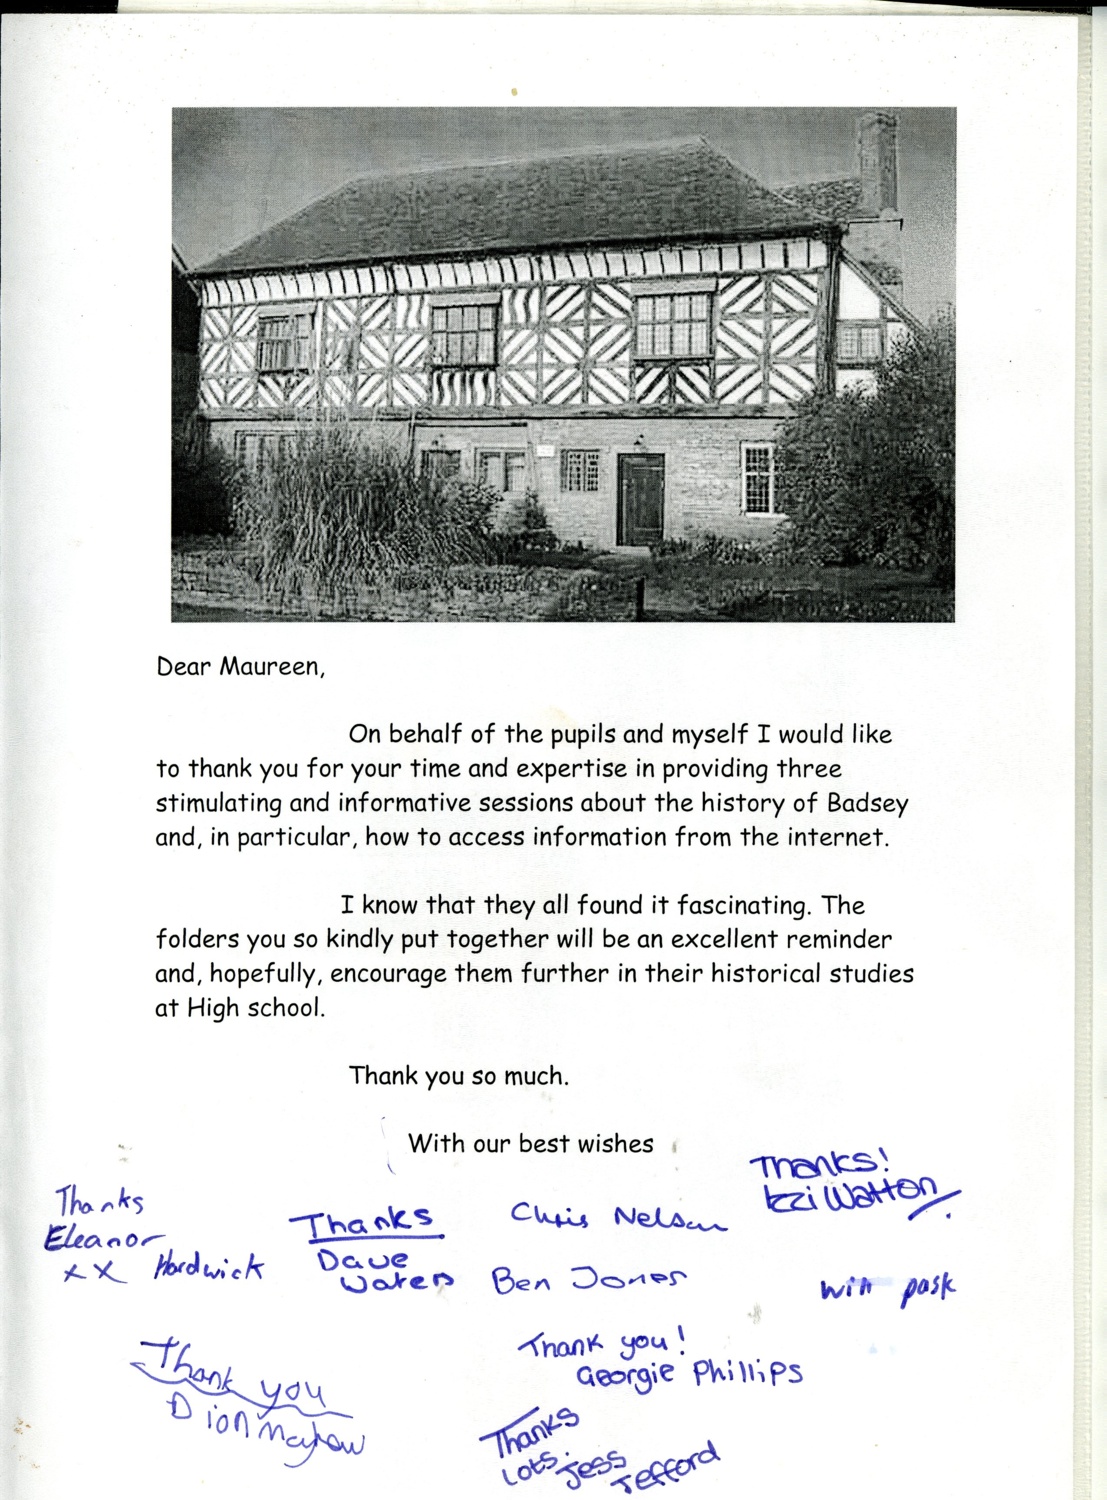 Dear Maureen,
On behalf of the pupils and myself I would like
to thank you for your time and expertise in providing three
stimulating and informative sessions about the history of Badsey
and, in particular, how to access information from the internet.
I know that they all found it fascinating. The
folders you so kindly put together will be an excellent reminder
and, hopefully, encourage them further in their historical studies
at High school.
Thank you so much.
With our best wishes
Thanks!
Izzi Watton
Thanks
Eleanor
xx Hardwick
Thanks
Dave
Waters
Chris Nelson
Ben Jones
Will pask
Thank you!
Georgie Phillips
Thank you
Dion Mayhew
Thanks
Lots.
Jess
Jefford